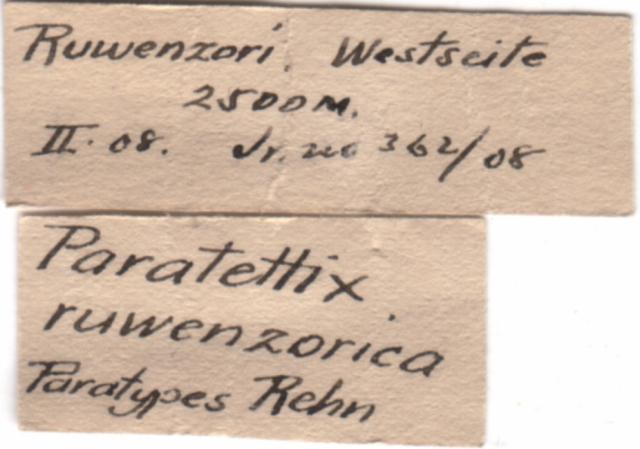 Ruwenzori. Westseite
2500 M.
II. 08. Jr. no 362/08
Paratettix
ruwenzorica
Paratypes Rehn